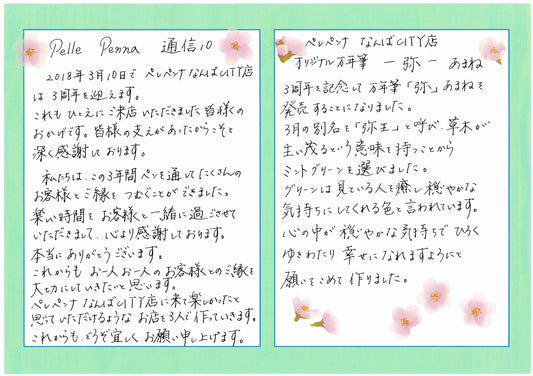 Pelle Penna 通信10
2018年3月10日で ペレペンナ なんばCITY店
は 3周年を迎えます。
これも ひとえに ご来店 いただきました 皆様の
おかげです。皆様の支えがあったからこそと
深く感謝しております。
私たちは、この3年間ペンを通してたくさんの
お客様とご縁を つむぐことができました。
楽しい時間を お客様と一緒に過ごさせて
いただきまして、心より感謝しております。
本当にありがとうございます。
これからも お一人お一人のお客様とのご縁を
大切にしていきたいと思います。
ペレペンナ なんばCITY店に来て楽しかったと
思っていただけるような お店を3人で作っていきます。
これからも、どうぞ宜しく お願い申し上げます。
ペレペンナ なんばCITY店
オリジナル万年筆 ー 弥 ー あまね
3周年を記念して 万年筆「弥」あまねを
発売することになりました。
3月の別名を「弥生」と呼び、草木が
生い茂るという意味を持つことから
ミントグリーンを選びました。
グリーンは見ている人を癒し穏やかな
気持ちにしてくれる色と言われています。
心の中が 穏やかな気持ちで ひろく
ゆきわたり 幸せになれますようにと
願いをこめて 作りました。